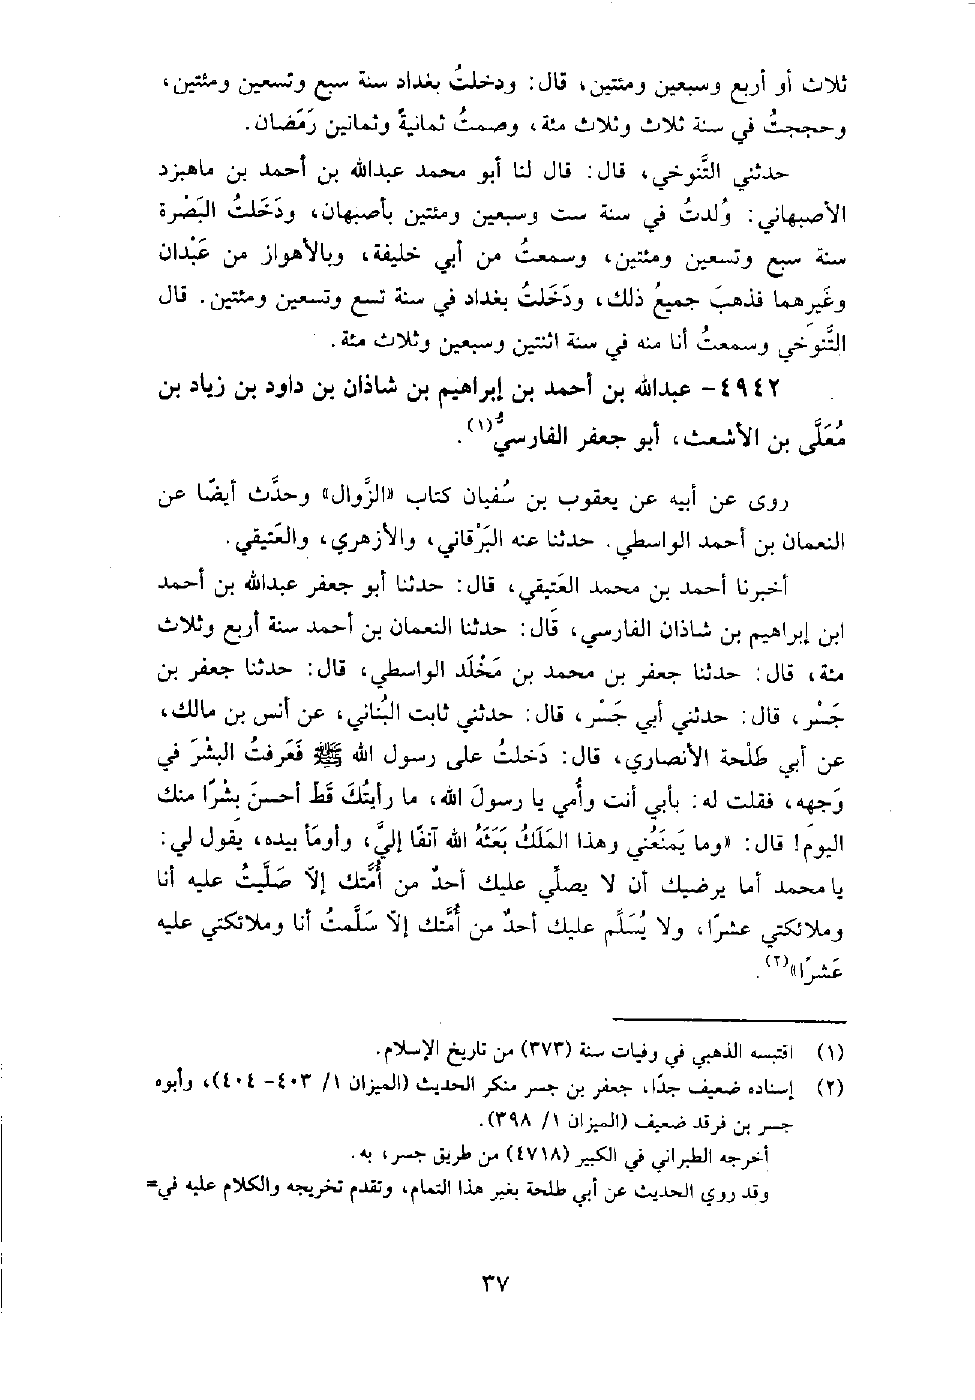 ثلاث أو أربع وسبعين ومئتين، قال: ودخلتُ بغداد سنة سبع وتسعين ومئتين،
وحججتُ في سنة ثلاث وثلاث مئة، وصمتُ ثمانيةً وثمانين رَمَضان.
حدثني التَّنوخي، قال: قال لنا أبو محمد عبدالله بن أحمد بن ماهبزد
الأصبهاني: وُلدتُ في سنة ست وسبعين ومئتين بأصبهان، ودَخَلتُ البَصْرة
سنة سبع وتسعين ومئتين، وسمعتُ من أبي خليفة، وبالأهواز من عَبْدان
وغَيرهما فذهبَ جميعُ ذلك، ودَخَلتُ بغداد في سنة تسع وتسعين ومئتين. قال
التَّنوخي وسمعتُ أنا منه في سنة اثنتين وسبعين وثلاث مئة.
٤٩٤٢- عبدالله بن أحمد بن إبراهيم بن شاذان بن داود بن زياد بن
مُعَلَّى بن الأشعث، أبو جعفر الفارسيُّ(١).
روى عن أبيه عن يعقوب بن سُفيان كتاب «الزَّوال» وحدَّث أيضًا عن
النعمان بن أحمد الواسطي. حدثنا عنه البَرْقاني، والأزهري، والعَتيقي.
أخبرنا أحمد بن محمد العَتيقي، قال: حدثنا أبو جعفر عبدالله بن أحمد
ابن إبراهيم بن شاذان الفارسي، قال: حدثنا النعمان بن أحمد سنة أربع وثلاث
مئة، قال: حدثنا جعفر بن محمد بن مَخْلَد الواسطي، قال: حدثنا جعفر بن
جَسْر، قال: حدثني أبي جَسْر، قال: حدثني ثابت البُناني، عن أنس بن مالك،
عن أبي طَلْحة الأنصاري، قال: دَخلتُ على رسول الله ﷺ فَعَرفتُ البشْرَ في
وَجهه، فقلت له: بأبي أنت وأُمي يا رسولَ الله، ما رأيتُكَ قَط أحسنَ بِشْرًا منك
اليوم! قال: «وما يَمنَعُني وهذا المَلَكُ بَعَثَهُ الله آنفًا إليَّ، وأومَأ بيده، يقول لي:
يا محمد أما يرضيك أن لا يصلِّي عليك أحدٌ من أُمَّتك إلاّ صَلَّيتُ عليه أنا
وملائكتي عشرًا، ولا يُسَلِّم عليك أحدٌ من أُمَّتك إلاّ سَلَّمتُ أنا وملائكتي عليه
عَشرًا»(٢).
(١) اقتبسه الذهبي في وفيات سنة (٣٧٣) من تاريخ الإسلام.
(٢) إسناده ضعيف جدًا، جعفر بن جسر منكر الحديث (الميزان ١/ ٤٠٣- ٤٠٤)، وأبوه
جسر بن فرقد ضعيف (الميزان ١/ ٣٩٨).
أخرجه الطبراني في الكبير (٤٧١٨) من طريق جسر، به.
وقد روي الحديث عن أبي طلحة بغير هذا التمام، وتقدم تخريجه والكلام عليه في=
٣٧